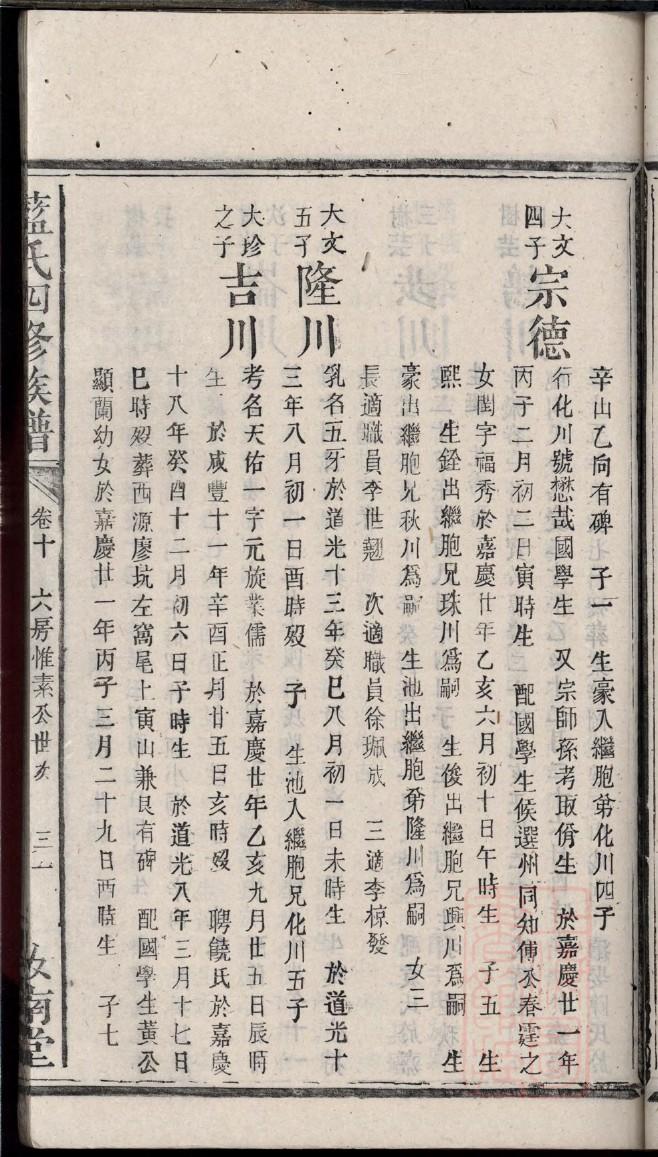 辛山乙向有碑 子一 生豪入繼胞弟化川四子
大文四子 宗德 行化川號懋哉國學生 又宗師孫考取佾生 於嘉慶廿一年
丙子二月初二日寅時生 配國學生候選州同知傅公春霆之
女閨字福秀於嘉慶廿年乙亥六月初十日午時生 子五 生
熙 生銓出繼胞兄珠川爲嗣 生俊出繼胞兄興川爲嗣 生
豪出繼胞兄秋川爲嗣 生池出繼胞弟隆川爲嗣 女三
長適職員李世翹 次適職員徐珮成 三適李椋發
大文五子 隆川 乳名五牙於道光十三年癸巳八月初一日未時生 於道光十
三年八月初一日酉時歿 子 生池入繼胞兄化川五子
大珍之子 吉川 考名天佑一字元旋業儒 於嘉慶廿年乙亥九月廿五日辰時
生 於咸豐十一年辛酉正月廿五日亥時歿 聘饒氏於嘉慶
十八年癸酉十二月初六日子時生 於道光八年三月十七日
巳時歿葬西源廖坑左窩尾上寅山兼艮有碑 配國學生黃公
顯蘭幼女於嘉慶廿一年丙子三月二十九日酉時生 子七
藍氏四修族譜 卷十 六房惟素公世次 三一 汝南堂